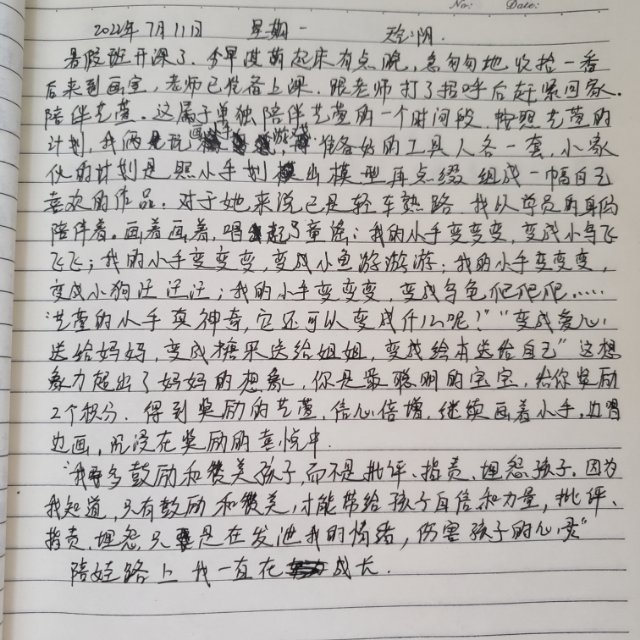 No: Date:
2022年7月11日 星期一 天气:阴
暑假班开课了.今早艾萌起床有点晚,急匆匆地收拾一番
后来到画室,老师已准备上课.跟老师打了招呼后赶紧回家.
陪伴艺萱.这属于单独陪伴艺萱的一个时间段.按照艺萱的
计划,我俩玩画手游戏,准备好的工具人各一套,小家
伙的计划是照小手划出模型再点缀组成一幅自己
喜欢的作品.对于她来说已是轻车熟路.我以学员的身份
陪伴着.画着画着,唱起了童谣:我的小手变变变,变成小鸟飞
飞飞;我的小手变变变,变成小鱼游游游;我的小手变变变,
变成小狗汪汪汪;我的小手变变变,变成乌龟爬爬爬……
"艺萱的小手真神奇,它还可以变成什么呢?""变成爱心
送给妈妈,变成糖果送给姐姐,变成绘本送给自己"这想
象力超出了妈妈的想象,你是最聪明的宝宝,给你奖励
2个积分.得到奖励的艺萱,信心倍增,继续画着小手,边唱
边画,沉浸在奖励的喜悦中.
"我多鼓励和赞美孩子,而不是批评、指责、埋怨孩子.因为
我知道,只有鼓励和赞美,才能带给孩子自信和力量,批评、
指责、埋怨只是在发泄我的情绪,伤害孩子的心灵"
陪娃路上我一直在成长.